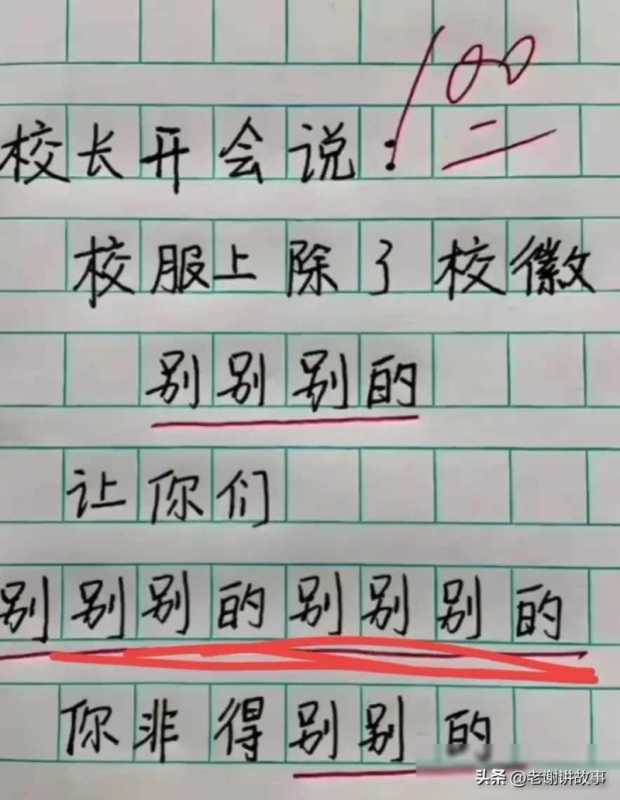 100
校长开会说:
校服上除了校徽
别别别的
让你们
别别别的别别别的
你非得别别的
头条 @老谢讲故事